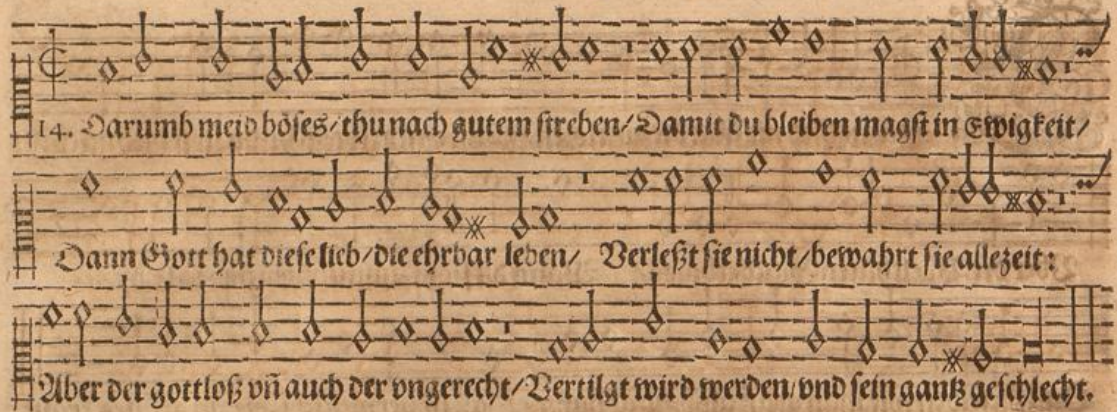 14. Darumb meid böses/thu nach gutem streben/Damit du bleiben magst in Ewigkeit/
Dann Gott hat diese lieb/die ehrbar leben/ Verleßt sie nicht/bewahrt sie allezeit:
Aber der gottloß vñ auch der vngerecht/Vertilgt wird werden/vnd sein gantz geschlecht.